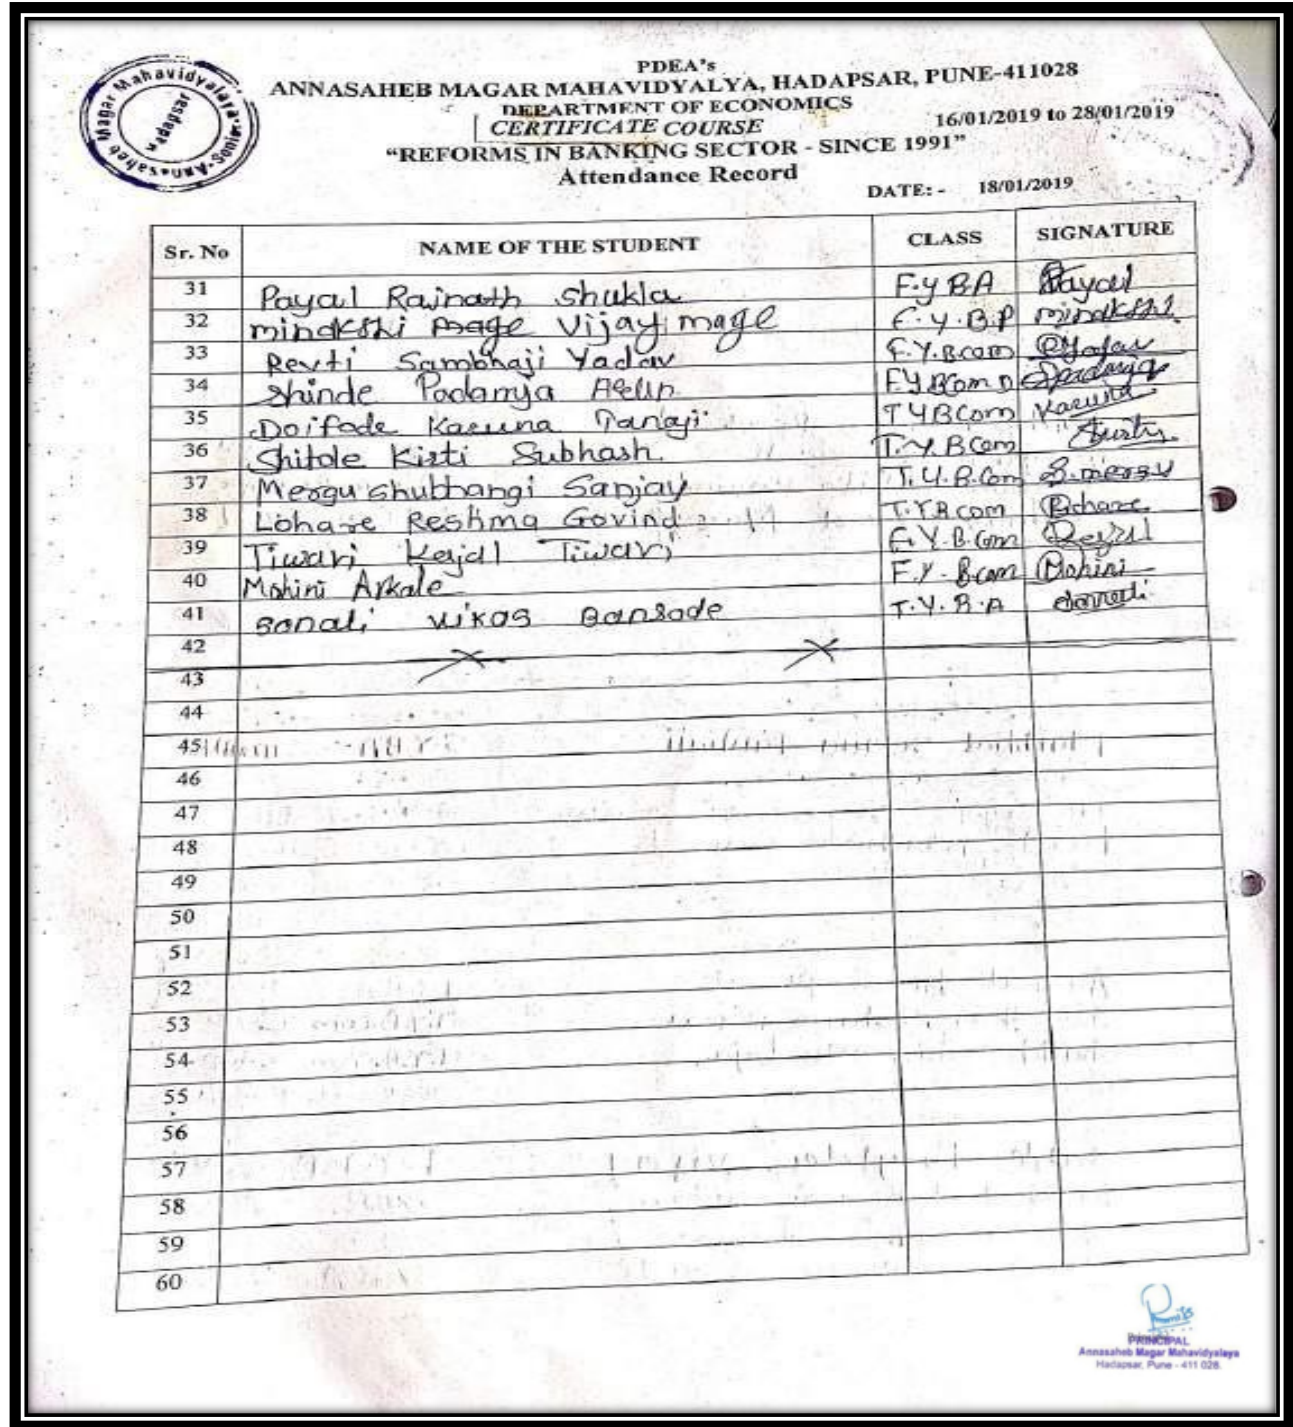 PDEA's
ANNASAHEB MAGAR MAHAVIDYALYA, HADAPSAR, PUNE-411028
DEPARTMENT OF ECONOMICS
CERTIFICATE COURSE 16/01/2019 to 28/01/2019
"REFORMS IN BANKING SECTOR - SINCE 1991"
Attendance Record
DATE: - 18/01/2019
Sr. No NAME OF THE STUDENT CLASS SIGNATURE
31 Payal Rajnath Shukla F.Y BA Payal
32 minakshi mage Vijay mage F.Y.B.A minakshi
33 Revti Sambhaji Yadav F.Y.Bcom
34 Shinde Padamja F.Y.BCom
35 Doifode Karuna Tanaji T Y BCom Karuna
36 Shitole Kirti Subhash T.Y.BCom
37 Mergu shubhangi Sanjay T.Y.B.Com S.mergu
38 Lohare Reshma Govind T.Y.Bcom
39 Tiwari Kajal Tiwari F.Y.B.Com
40 Mohini Arkale F.Y.Bcom Mohini
41 Sonali Vikas Bansode T.Y.B.A
42
43
44
45
46
47
48
49
50
51
52
53
54
55
56
57
58
59
60
PRINCIPAL
Annasaheb Magar Mahavidyalaya
Hadapsar, Pune - 411 028.